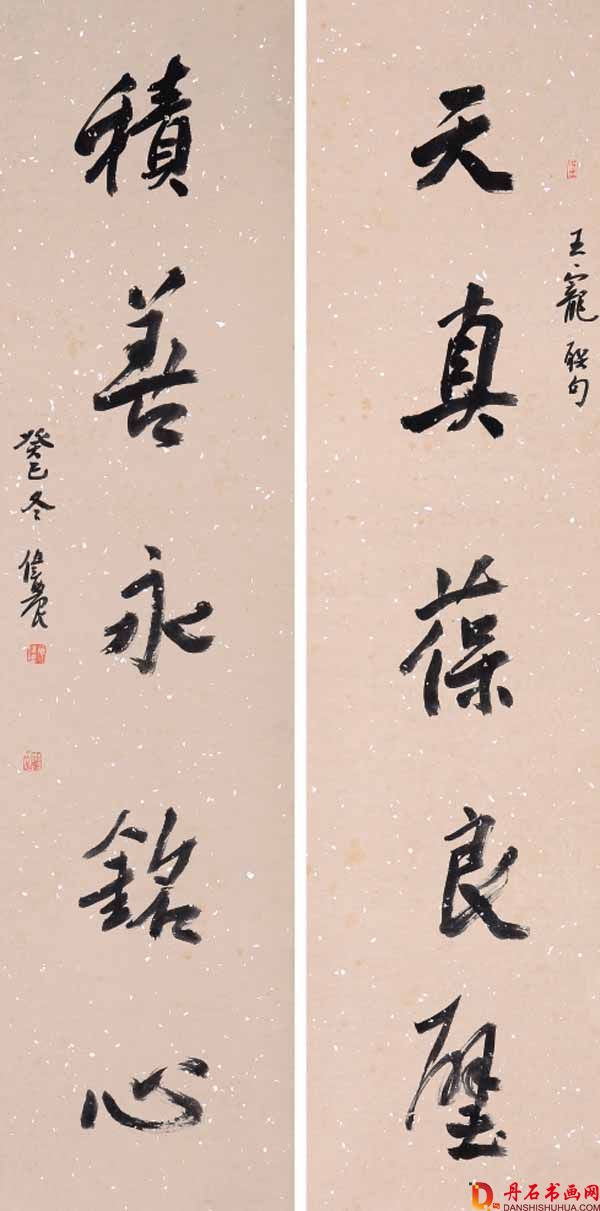 天真葆良璧
王寵聯句
積善永銘心
癸巳冬
丹石书画网
DANSHISHUHUA.COM